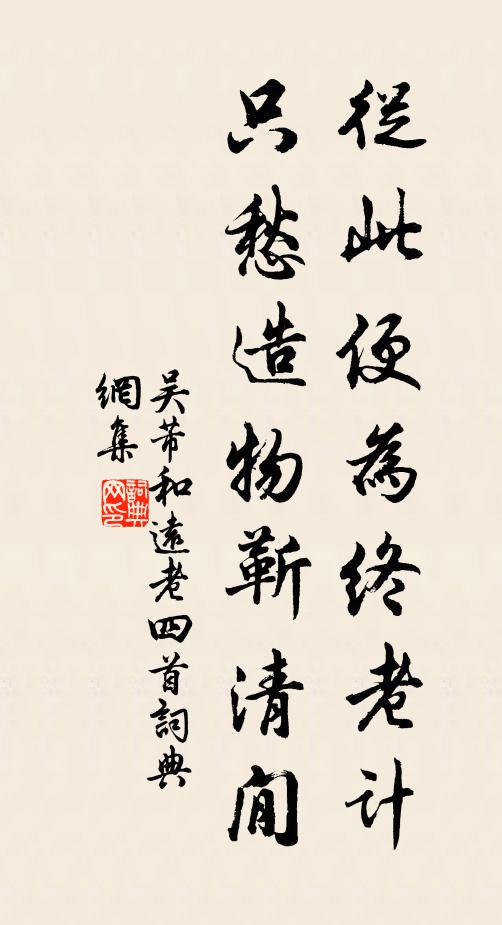 從此便為終老計
只愁造物靳清閒
吳芾和遠老四首詞典
網集
詞典
網印